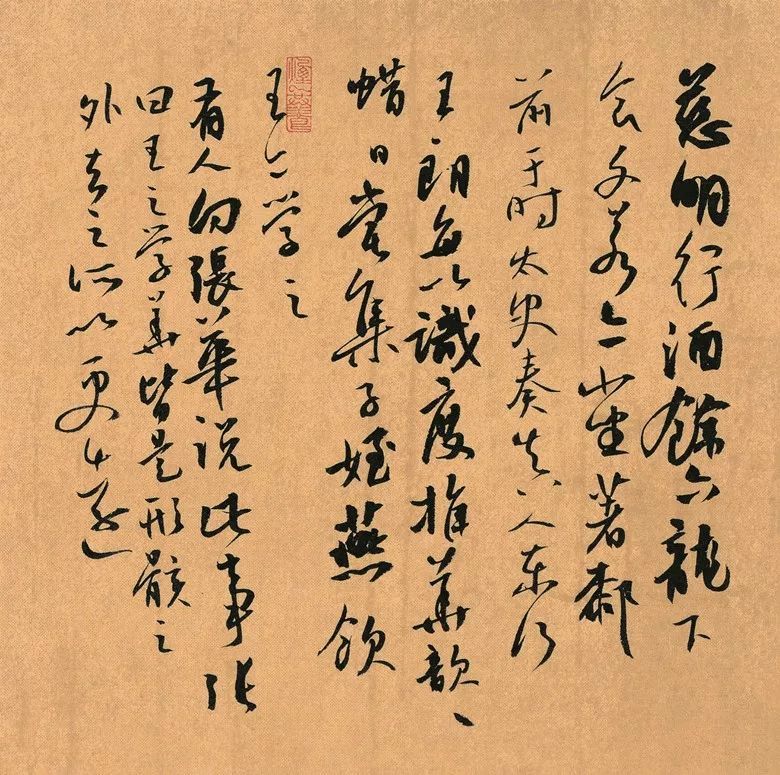 慈明行酒餘六龍下
食文若亦小坐著膝
前于时太史奏真人东行
王朗每以識度推華歆歆
蜡日嘗集子姪燕飲
王亦学之
有人向張華说此事张
曰王之学华皆是形骸之
外去之所以更生遠